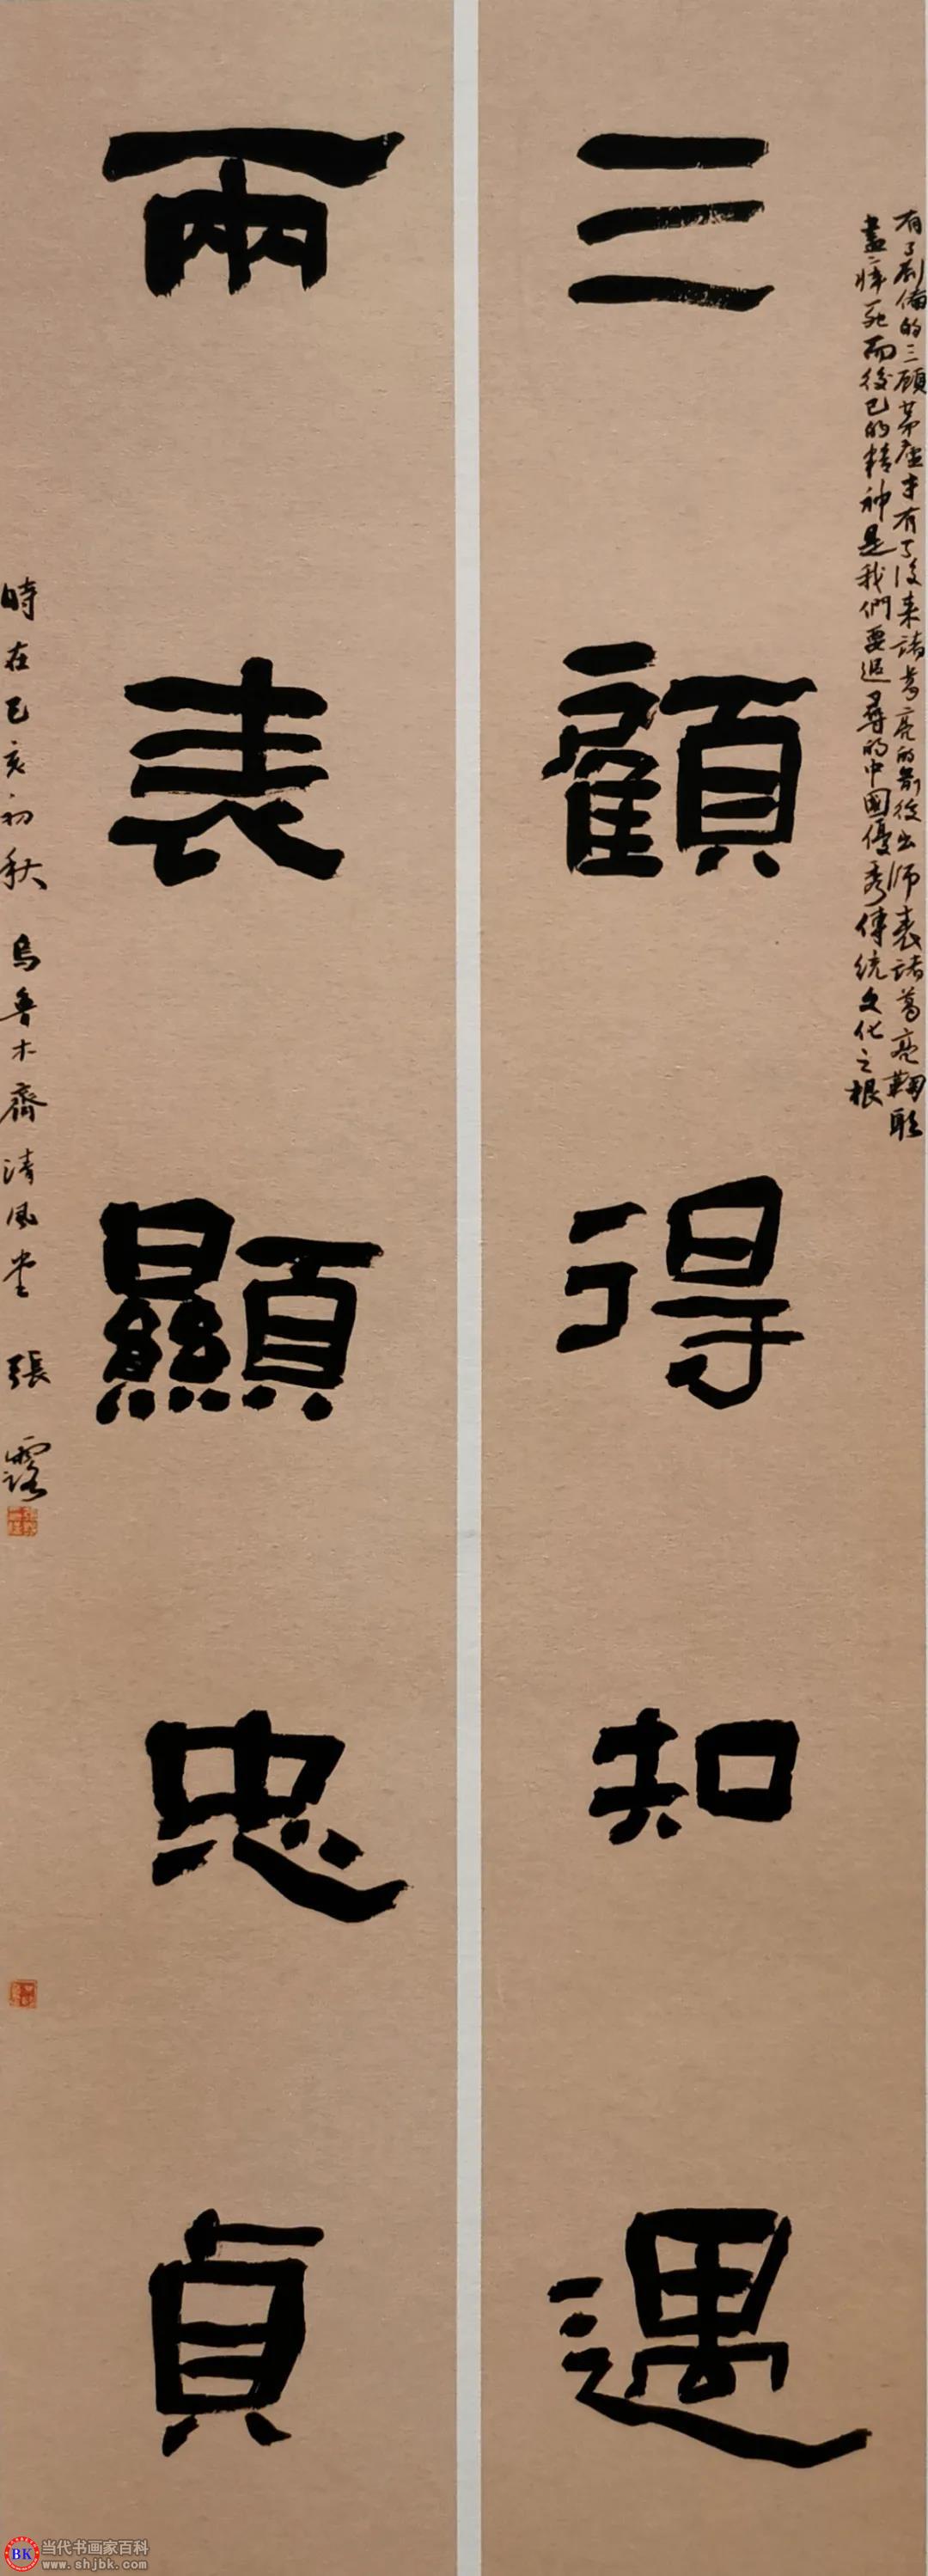 三顧得知遇
有了劉備的三顧茅廬才有了後来諸葛亮的前後出师表諸葛亮鞠躬
盡瘁死而後已的精神是我們要追尋的中國優秀傳統文化之根
兩表顯忠貞
時在己亥初秋 烏魯木齊清風堂 張露
当代书画家百科
www.shjbk.com
BK